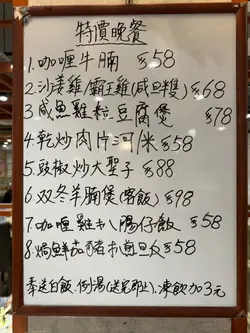 特價晚餐
1.咖喱牛腩 $58
2.沙姜雞/霸王雞(咸旦雙) $68
3.咸魚雞粒豆腐煲 $78
4.乾炒肉片河/米 $58
5.豉椒炒大聖子 $88
6.双冬羊腩煲(客飯) $98
7.咖喱雞扒腸仔飯 $58
8.焗鮮茄豬扒 $58
奉送白飯,例湯(送完即止),凍飲加3元